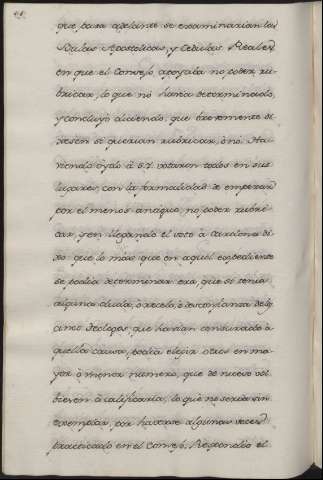 que para adelante se examinarian las
Bulas Apostolicas, y Cedulas Reales
en que el Consejo apoyaba no poder ru-
bricar, lo que no havia determinado,
y concluyò diciendo, que brevemente di-
xesen si querian rubricar, ò no. Ha-
viendo oydo à S.Y. votaron todos en sus
lugares, con la formalidad de empezar
por el menos antiguo, no poder rubri-
car, y en llegando el voto à Cardona di-
xo que lo mas que en aquel expediente
se podia determinar era, que si tenia
alguna duda, ò recelo, ò desconfianza de los
cinco Teologos que havian censurado a-
quella causa, podia elegir otros en ma-
yor ò menor numero, que de nuevo vol-
viesen à calificarla; lo que no seria sin
exemplar, por haverse algunas veces
practicado en el Consejo. Respondiò el